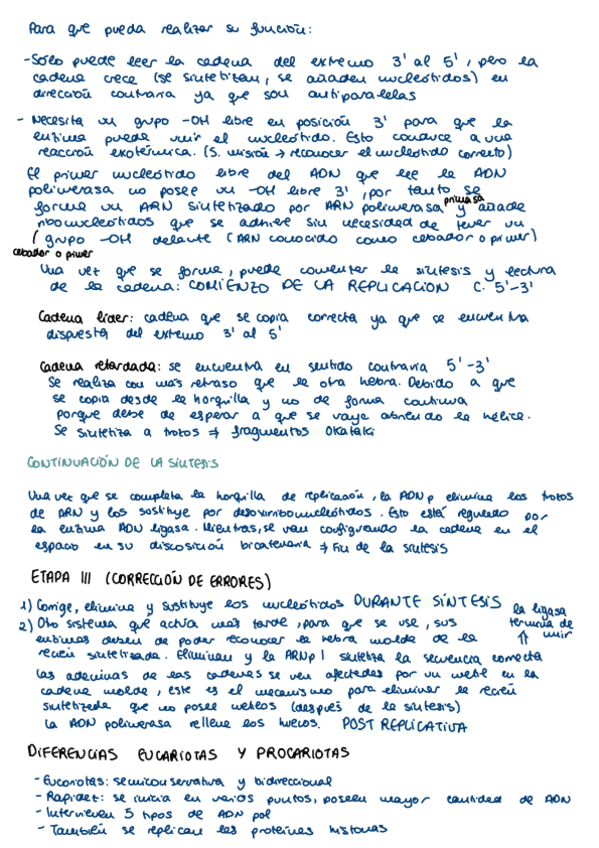 Para que pueda realizar su función:
-Sólo puede leer la cadena del extremo 3' al 5', pero la
cadena crece (se sintetizan, se añaden nucleótidos) en
dirección contraria ya que son antiparalelas
- Necesita un grupo -OH libre en posición 3' para que la
enzima pueda unir el nucleótido. Esto conduce a una
reacción exotérmica. (S. misión → reconocer el nucleótido correcto)
El primer nucleótido libre del ADN que lee la ADN
polimerasa no posee un -OH libre 3', por tanto se
forma un ARN sintetizado por ARN polimerasa primasa y añade
ribonucleótidos que se adhiere sin necesidad de tener un
grupo -OH delante (ARN conocido como cebador o primer)
cebador o primer
Una vez que se forma, puede comenzar la síntesis y lectura
de la cadena: COMIENZO DE LA REPLICACIÓN C. 5'-3'
Cadena líder: cadena que se copia correcta ya que se encuentra
dispuesta del extremo 3' al 5'
Cadena retardada: se encuentra en sentido contraria 5'-3'
Se realiza con más retraso que la otra hebra. Debido a que
se copia desde la horquilla y no de forma continua
porque debe de esperar a que se vaya abriendo la hélice.
Se sintetiza a trozos ⇒ fragmentos Okazaki
CONTINUACIÓN DE LA SÍNTESIS
Una vez que se completa la horquilla de replicación, la ADNp elimina los trozos
de ARN y los sustituye por desoxirribonucleótidos. Esto está regulado por
la enzima ADN ligasa. Mientras, se van configurando la cadena en el
espacio en su discosición bicatenaria ⇒ Fin de la síntesis
ETAPA III (CORRECCIÓN DE ERRORES)
1) Corrige, elimina y sustituye los nucleótidos DURANTE SÍNTESIS la ligasa
2) Oto sistema que actúa más tarde, para que se use, sus termina de
enzimas deben de poder reconocer la hebra molde de la ⇑ unir
recién sintetizada. Eliminan y la ARNp I sintetiza la secuencia correcta
Las adeninas de las cadenas se ven afectadas por un metil en la
cadena molde, este es el mecanismo para eliminar la recién
sintetizada que no posee metilos (después de la síntesis)
La ADN polimerasa rellena los huecos. POST REPLICATIVA
DIFERENCIAS EUCARIOTAS Y PROCARIOTAS
- Eucariotas: semiconservativa y bidireccional
- Rapidez: se inicia en varios puntos, poseen mayor cantidad de ADN
- Intervienen 5 tipos de ADN pol
- También se replican las proteínas histonas